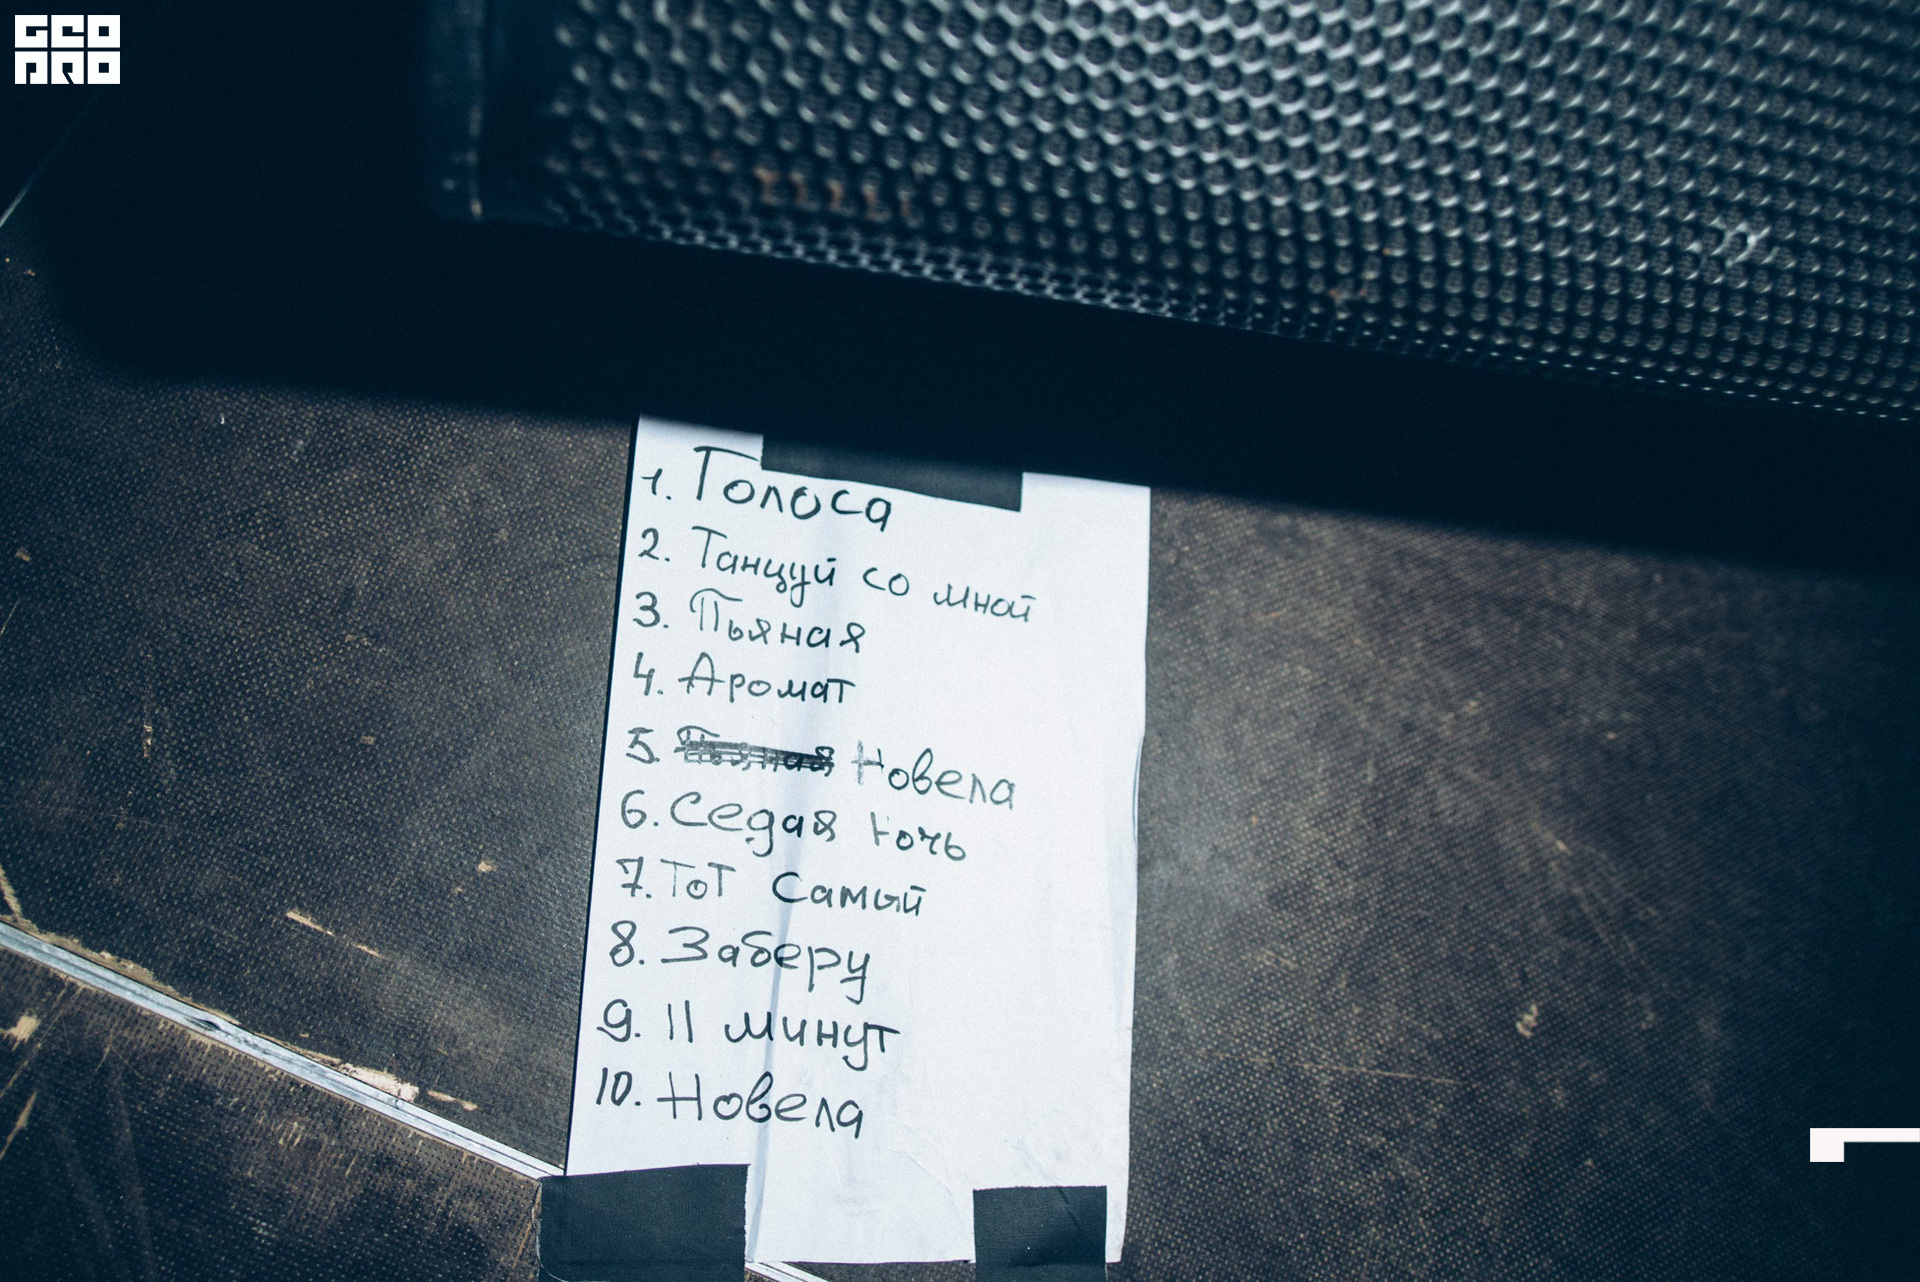 GEO
PRO
1. Голоса
2. Танцуй со мной
3. Пьяная
4. Аромат
5. Пьяная Новела
6. Седая ночь
7. Тот Самый
8. Заберу
9. 11 минут
10. Новела